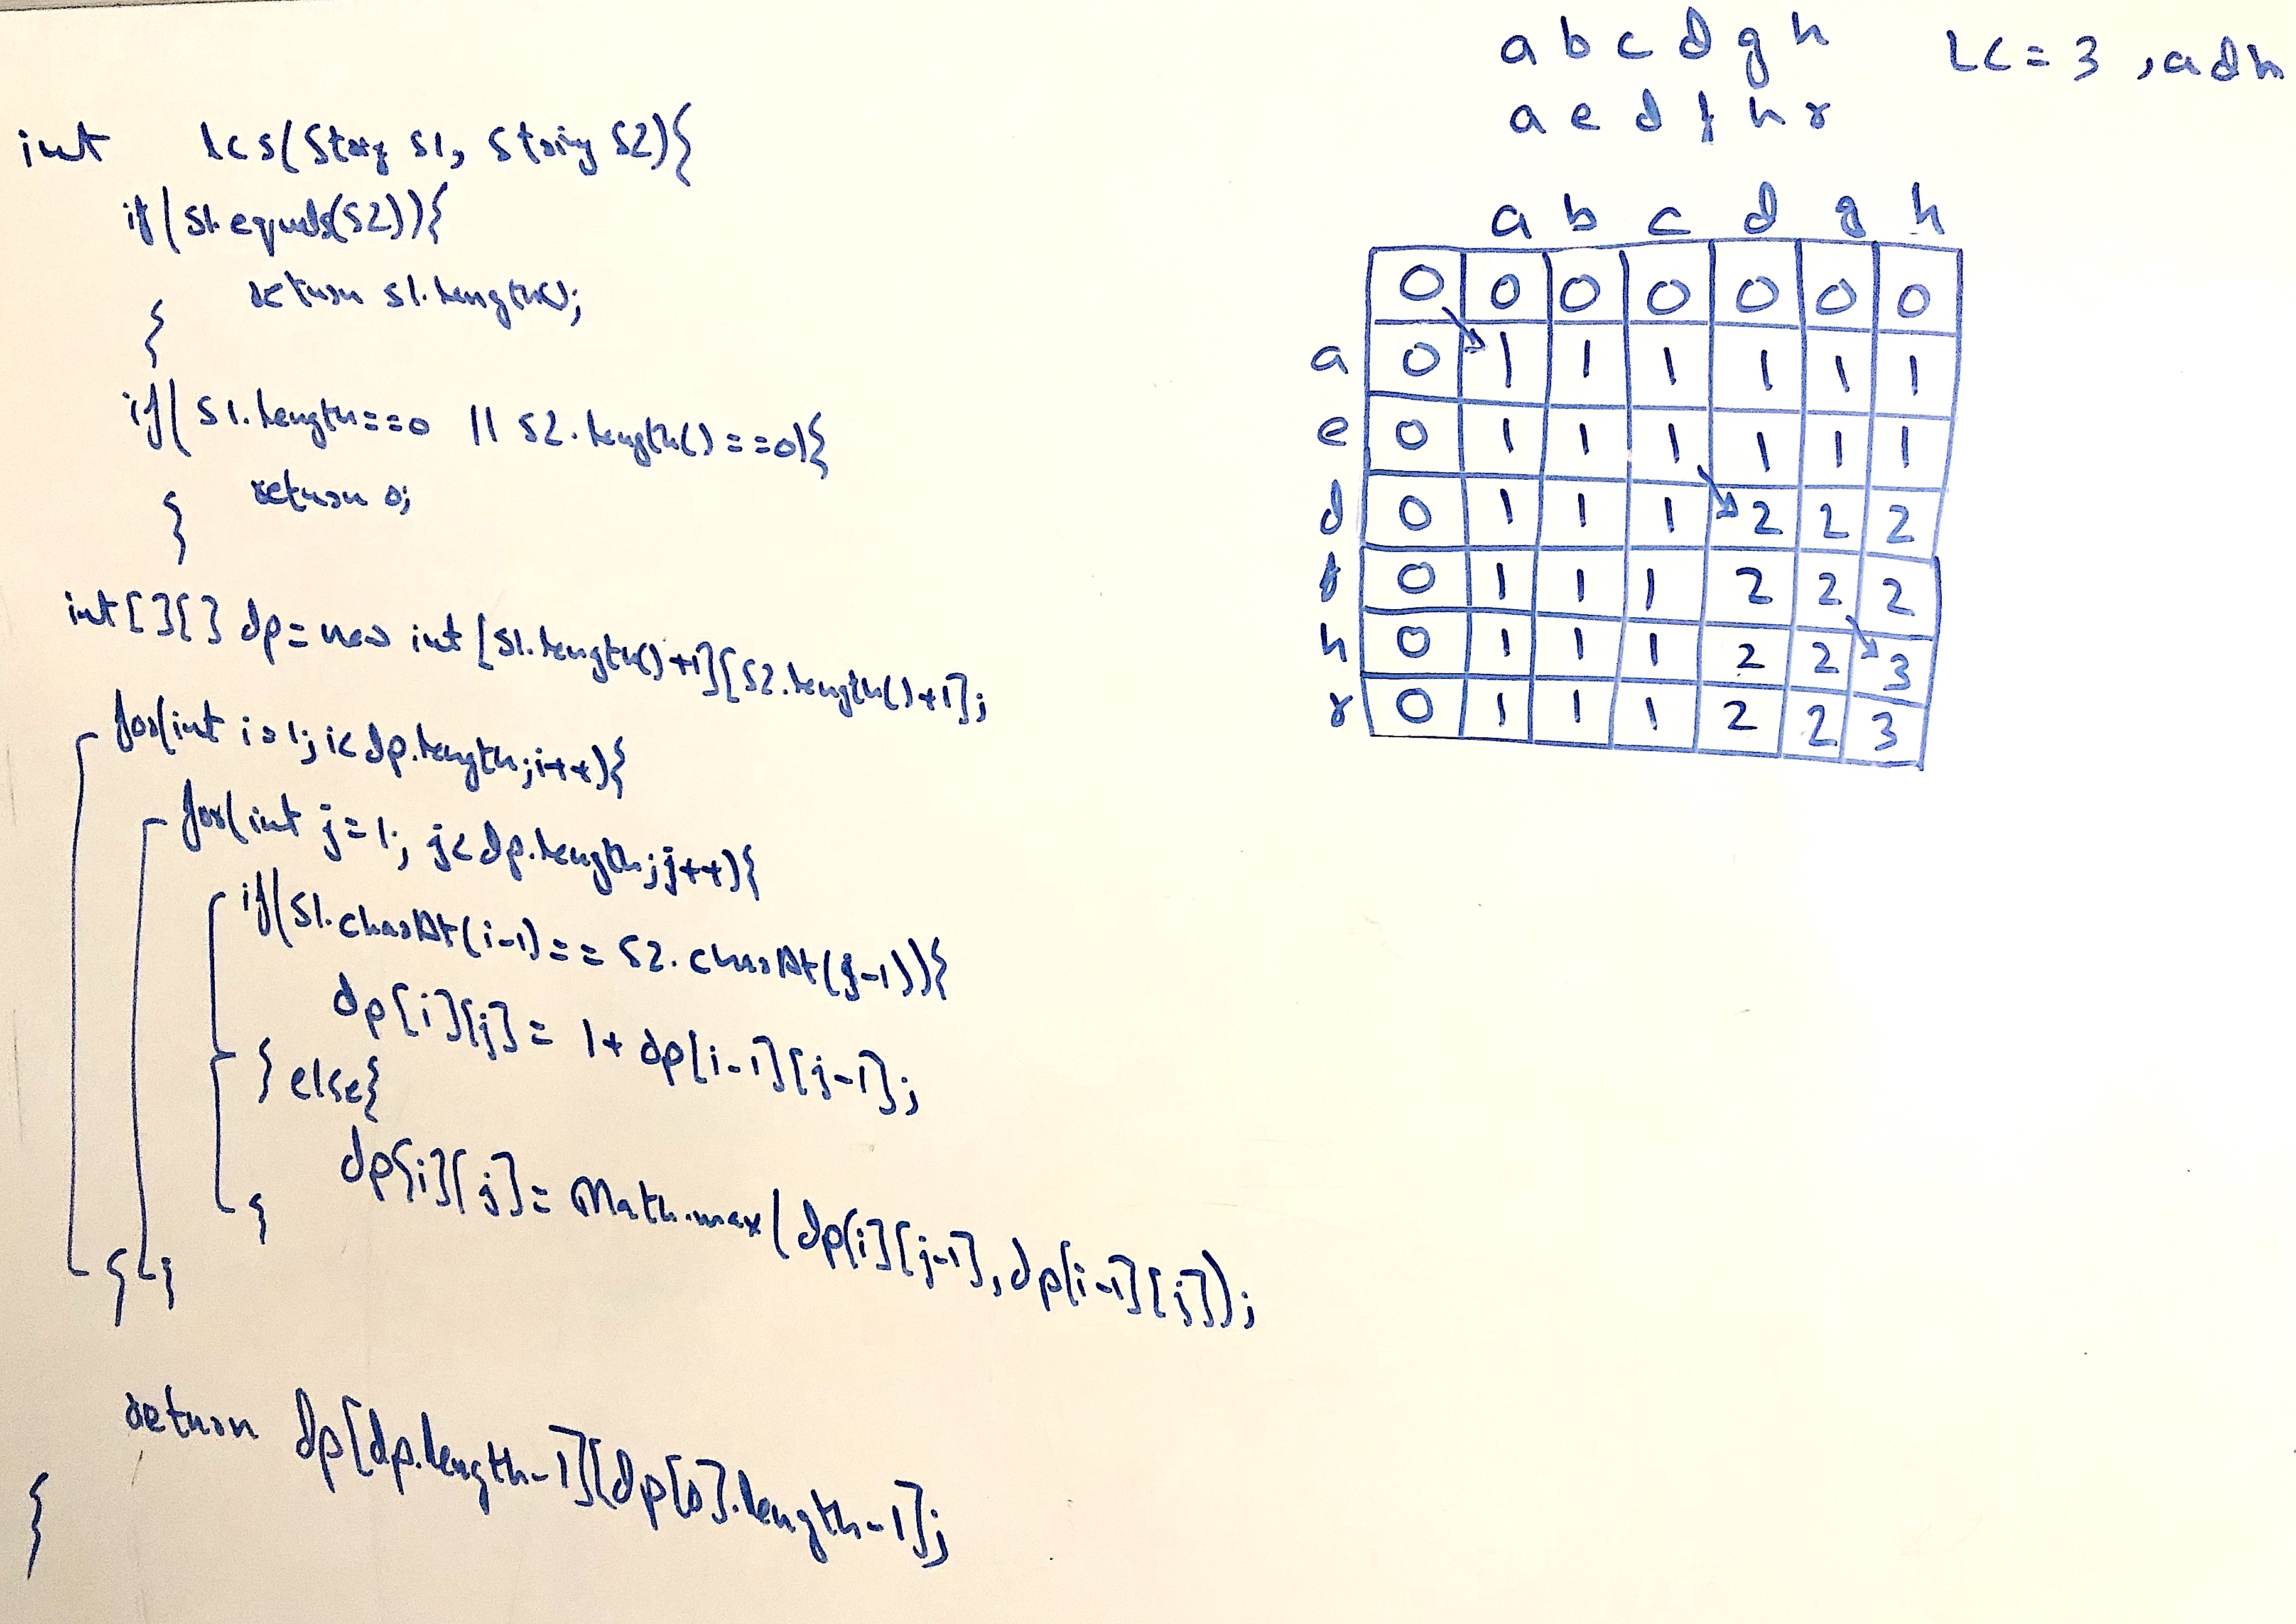 int lcs(String s1, String s2){
if(s1.equals(s2)){
return s1.length();
}
if(s1.length==0 || s2.length()==0){
return 0;
}
int[][] dp = new int[s1.length()+1][s2.length()+1];
for(int i=1; i<dp.length; i++){
for(int j=1; j<dp.length; j++){
if(s1.charAt(i-1)== s2.charAt(j-1)){
dp[i][j] = 1+ dp[i-1][j-1];
} else{
dp[i][j] = Math.max(dp[i][j-1], dp[i-1][j]);
}
} }
return dp[dp.length-1][dp[0].length-1];
}
a b c d g h LC = 3 , adh
a e d f h r
a b c d g h
0 0 0 0 0 0 0
a 0 1 1 1 1 1 1
e 0 1 1 1 1 1 1
d 0 1 1 1 2 2 2
f 0 1 1 1 2 2 2
h 0 1 1 1 2 2 3
r 0 1 1 1 2 2 3